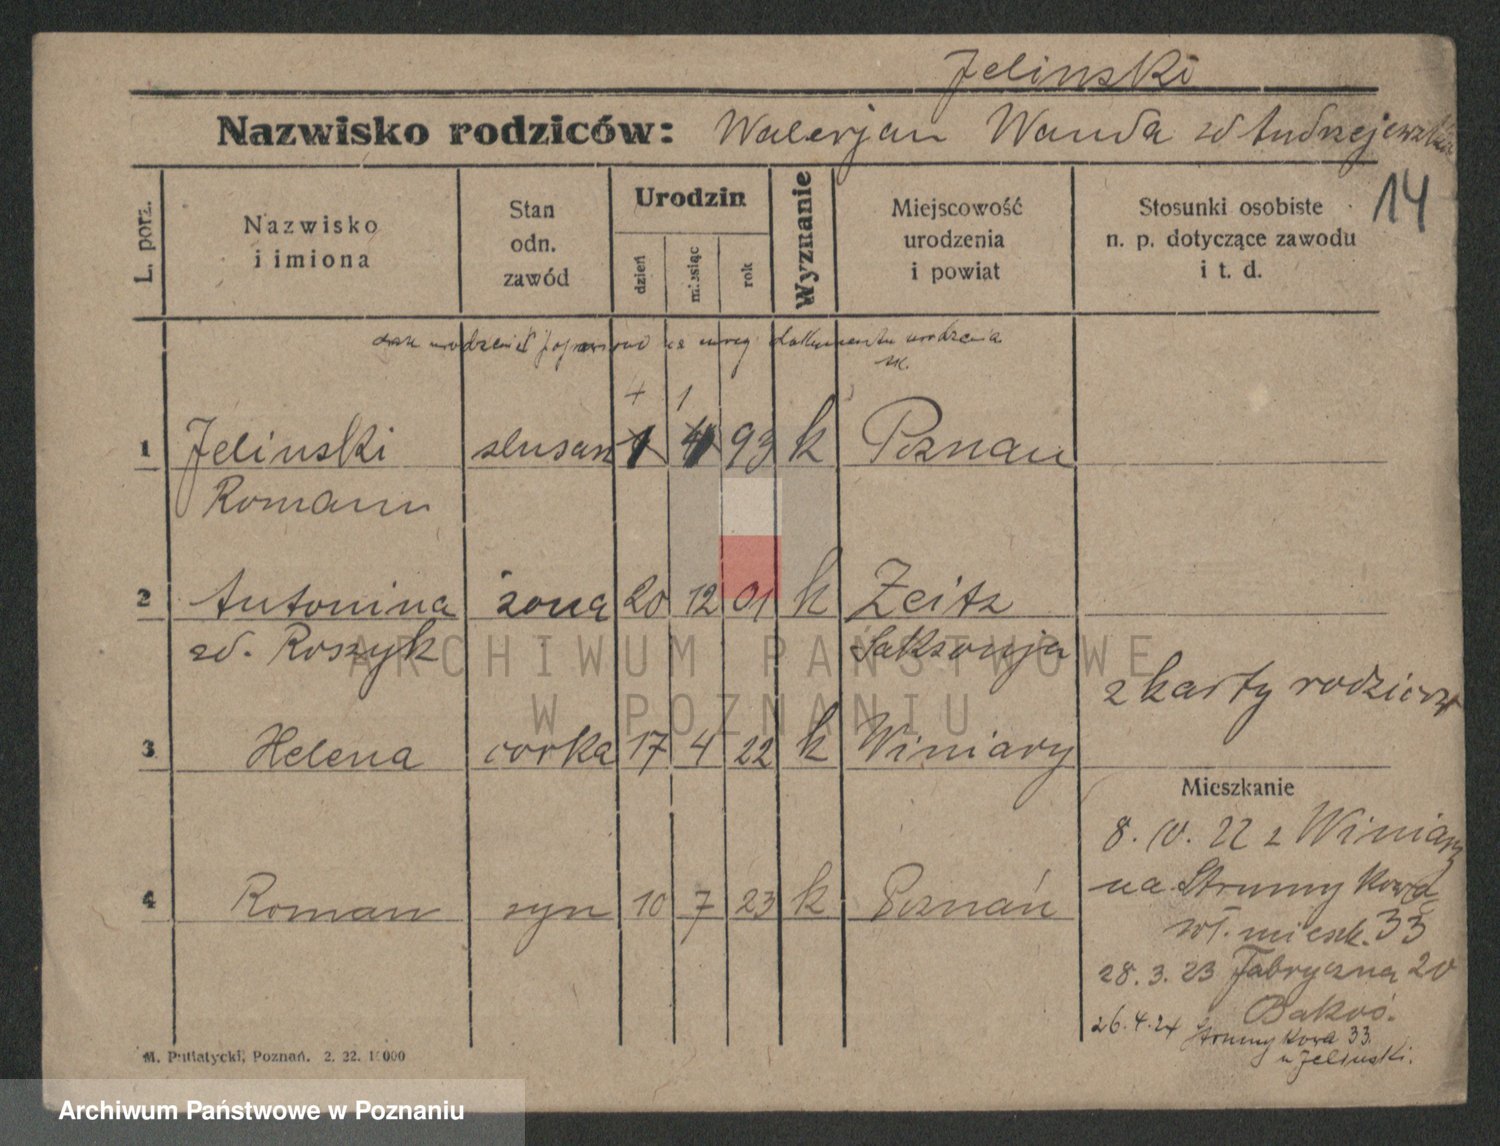 Jelinski
Nazwisko rodziców: Walerjan Wanda zd Andrzejewska
14
L. porz.
Nazwisko i imiona
Stan odn. zawód
Urodzin
dzień
miesiąc
rok
Wyznanie
Miejscowość urodzenia i powiat
Stosunki osobiste n. p. dotyczące zawodu i t. d.
urodzenia na dokumentu urodzenia
1 Jelinski ślusarz 1 4 93 k Poznań
Romann
2 Antonina żona 20 12 01 k Zeitz
zd. Roszyk Saksonja
z karty rodziców
3 Helena córka 17 4 22 k Winiary
Mieszkanie
8. IV. 22 z Winiary
na Strumykowa
wł. mieszk. 33
4 Roman syn 10 7 23 k Poznań
28. 3. 23 Fabryczna 20
26. 4. 24 Strumykowa 33.
u Jelinski.
M. Putiatycki, Poznań. 2. 22. 1000
ARCHIWUM PAŃSTWOWE
W POZNANIU
Archiwum Państwowe w Poznaniu